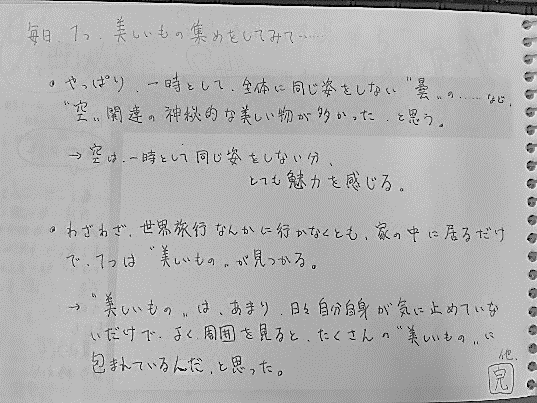 毎日、1つ、美しいもの集めをしてみて……
• やっぱり、一時として、全体に同じ姿をしない〝曇〟の……など、
〝空〟関連の神秘的な美しい物が多かった、と思う。
→ 空は、一時として同じ姿をしない分、
とても魅力を感じる。
• わざわざ、世界旅行なんかに行かなくとも、家の中に居るだけ
で、1つは〝美しいもの〟が見つかる。
→ 〝美しいもの〟は、あまり、日々自分自身が気に止めていな
いだけで、よく周囲を見ると、たくさんの〝美しいもの〟に
包まれているんだ、と思った。
他、